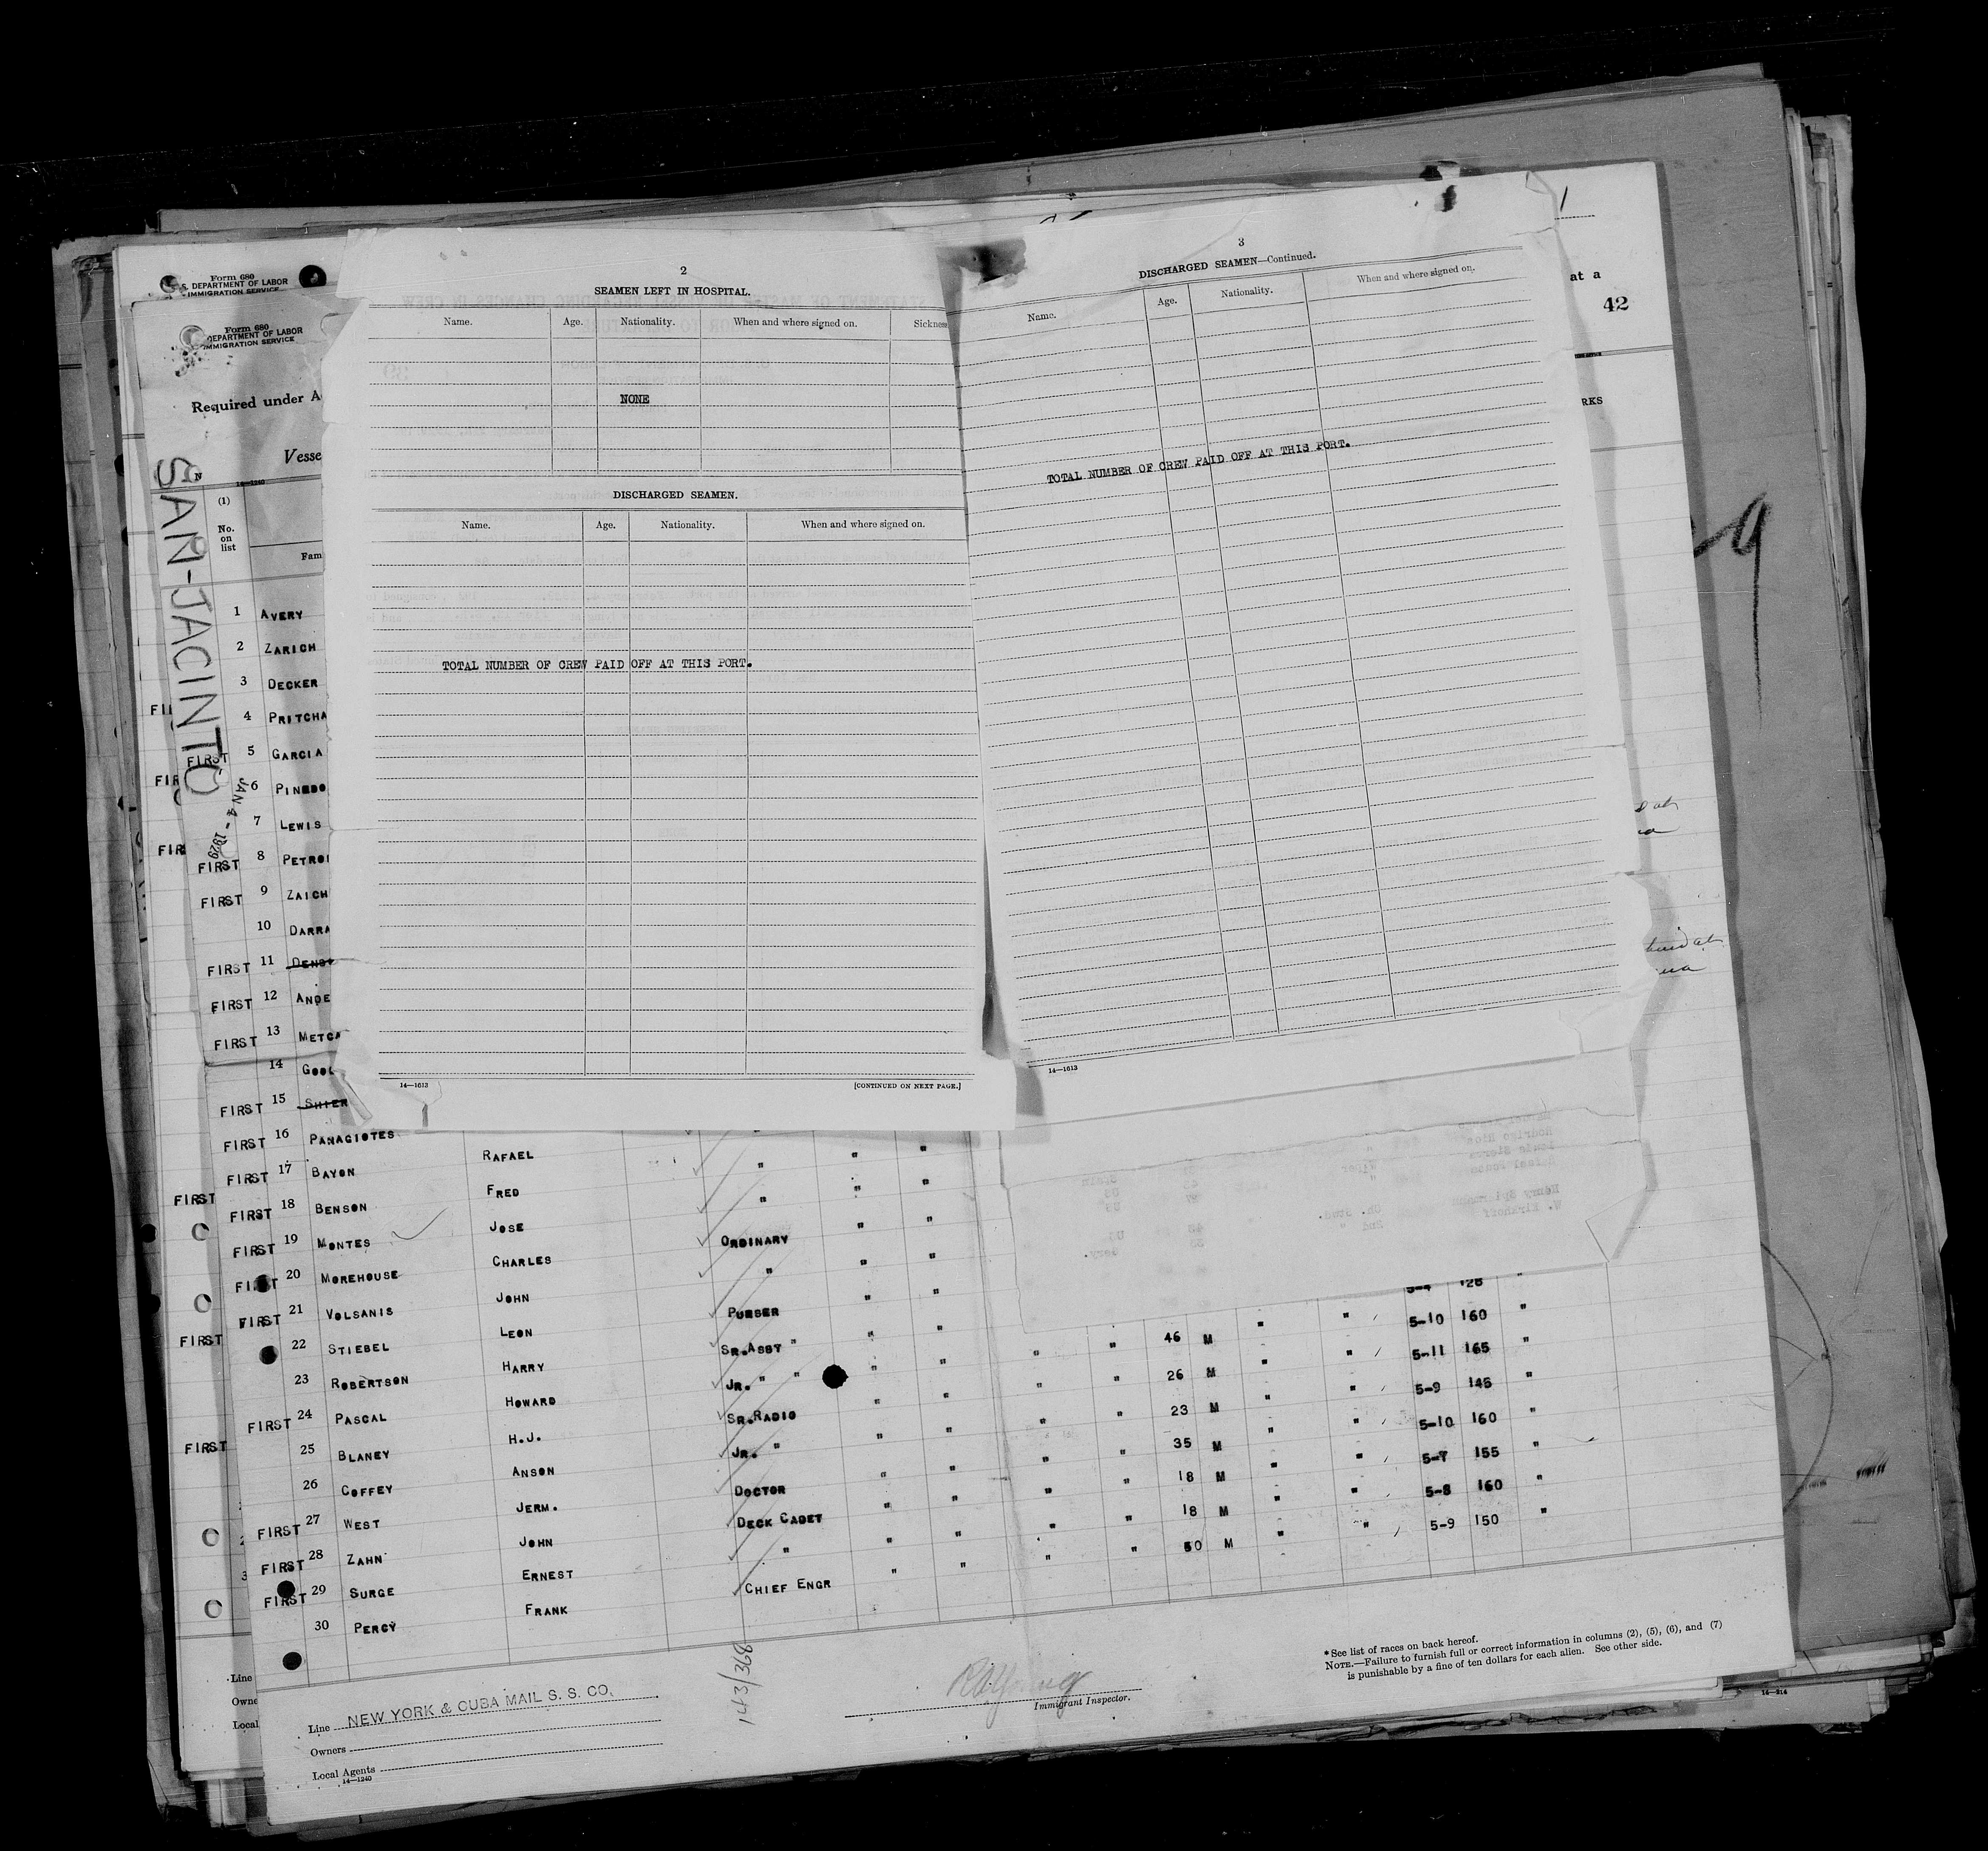 Form 680
U.S. DEPARTMENT OF LABOR
IMMIGRATION SERVICE
Form 680
DEPARTMENT OF LABOR
IMMIGRATION SERVICE
Required under A
Vesse
14—1240
(1)
No.
on
list
Fam
SAN-JACINTO
JAN 4 - 1929
2
SEAMEN LEFT IN HOSPITAL.
Name. Age. Nationality. When and where signed on. Sickness
NONE
DISCHARGED SEAMEN.
Name. Age. Nationality. When and where signed on.
TOTAL NUMBER OF CREW PAID OFF AT THIS PORT.
14—1613
[CONTINUED ON NEXT PAGE.]
3
DISCHARGED SEAMEN—Continued.
Name. Age. Nationality. When and where signed on.
TOTAL NUMBER OF CREW PAID OFF AT THIS PORT.
14—1613
at a
42
RKS
1 AVERY
2 ZARICH
3 DECKER
4 PRITCHA
FIRST 5 GARCIA
6 PINEDO
7 LEWIS
FIRST 8 PETRO
FIRST 9 ZAICH
10 DARRA
FIRST 11 DENS
FIRST 12 ANDE
FIRST 13 METCA
14 GOOL
FIRST 15 SHIER
FIRST 16 PANAGIOTES
FIRST 17 BAYON RAFAEL " " "
FIRST 18 BENSON FRED " " "
FIRST 19 MONTES JOSE ORDINARY " "
FIRST 20 MOREHOUSE CHARLES " " "
FIRST 21 VOLSANIS JOHN PURSER " "
22 STIEBEL LEON SR.ASST " " "
23 ROBERTSON HARRY JR. " " " "
FIRST 24 PASCAL HOWARD SR.RADIO " "
25 BLANEY H.J. JR. " " "
26 COFFEY ANSON DOCTOR " "
FIRST 27 WEST JERM. DECK CADET " "
FIRST 28 ZAHN JOHN " " "
FIRST 29 SURGE ERNEST CHIEF ENGR " "
30 PERCY FRANK
5-4 128 "
" " 46 M " " 5-10 160 "
" " 26 M " " 5-11 165 "
" " 23 M " " 5-9 145 "
" " 35 M " " 5-10 160 "
" " 18 M " " 5-7 155 "
" " 18 M " " 5-8 160 "
" " 50 M " " 5-9 150 "
143/368
Line NEW YORK & CUBA MAIL S. S. CO.
Owners
Local Agents
14—1240
Immigrant Inspector.
*See list of races on back hereof.
NOTE.—Failure to furnish full or correct information in columns (2), (5), (6), and (7)
is punishable by a fine of ten dollars for each alien. See other side.
14—214
Line
Owne
Local